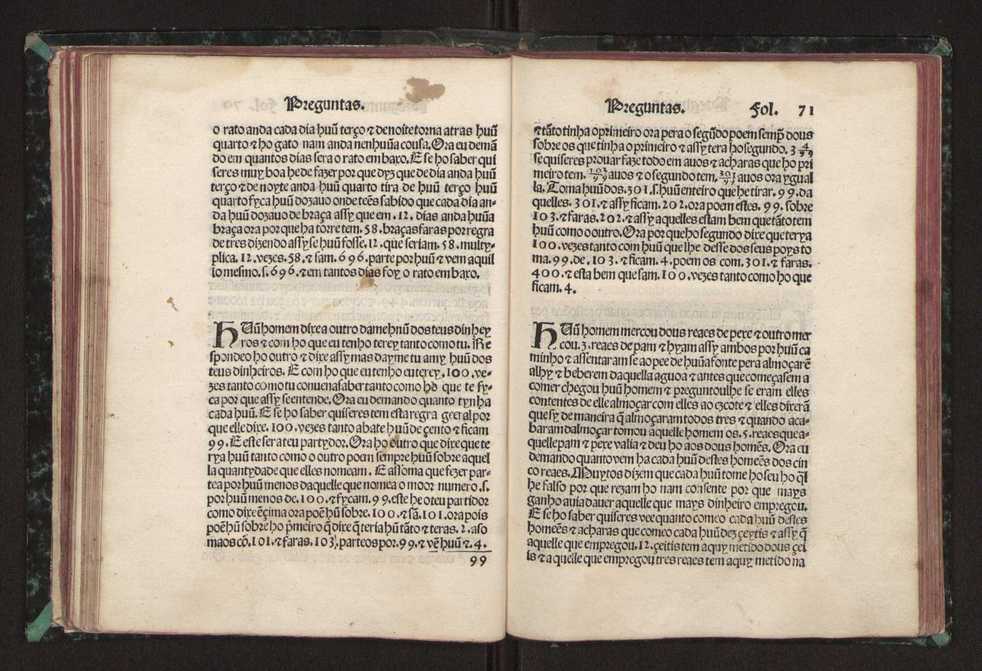 Preguntas.
o rato anda cada dia huũ terço ⁊ denoite torna atras huũ
quarto ⁊ ho gato nam anda nenhuũa cousa. Ora eu demã
do em quantos dias sera o rato em baxo. E se ho saber qui
seres muy boa he de fazer por que dys que de dia anda huũ
terço ⁊ de noyte anda huũ quarto tira de huũ terço huũ
quarto fyca huũ dozauo onde teẽs sabido que cada dia an-
da huũ dozauo de braça assy que em .12. dias anda huũa
braça ora por que ha torre tem .58. braças faras por regra
de tres dizendo assy se huũ fosse .12. que seriam .58. multy-
plica .12. vezes .58. ⁊ sam .696. parte por huũ ⁊ vem aqui
lo mesmo .s. 696. ⁊ em tantos dias foy o rato em baxo.
HUũ homem dixe a outro dame huũ dos teus dinhey
ros ⁊ com ho que eu tenho terey tanto como tu. Re
spondeo ho outro ⁊ dixe assy mas dayme tu amy huũ dos
teus dinheiros. E com ho que eu tenho euterey .100. ve-
zes tanto como tu conuem a saber tanto como ho que te fy-
ca por que assy se entende. Ora eu demando quanto tynha
cada huũ. E se ho saber quiseres tem esta regra geeral por
que elle dixe .100. vezes tanto abate huũ de çento ⁊ ficam
99. E este sera teu partydor. Ora ho outro que dixe que te
rya huũ tanto como o outro poem sempre huũ sobre aquel
la quantydade que elles nomeam. E assoma que fezer par-
tea por huũ menos daquelle que nomea o moor numero .s.
por huũ menos de .100. ⁊ fycam .99. este he o teu partidor
como dixe ẽçima ora poẽ hũ sobre .100. ⁊ sã .101. ora pois
poẽ hũ sobre ho p̃meiro q̃ dixe q̃ teria hũ tãto ⁊ teras .2. aso
maos cõ .101. ⁊ faras .103. parteos por .99. ⁊ vẽ huũ ⁊ .4.
99
Preguntas. Fol. 71
⁊ tãto tinha o primeiro ora pera o segũdo poem semp̃ dous
sobre os que tinha o primeiro ⁊ assy tera ho segundo. 3 4/99
se quiseres prouar faze todo em auos ⁊ acharas que ho pri
meiro tem. 103/99 auos ⁊ o segundo tem, 301/99 auos ora ygual
la. Toma huũ dos .301. s. huũ enteiro que he tirar .99. da
quelles .301. ⁊ assy ficam .202. ora poem estes .99. sobre
103. ⁊ faras .202. ⁊ assy aquelles estam bem que tãto tem
huũ como o outro. Ora por que ho segundo dixe que terya
100. vezes tanto com huũ que lhe desse dos seus poys to
ma .99. de .103. ⁊ ficam .4. poem os com .301. ⁊ faras.
400. ⁊ esta bem que sam .100. vezes tanto como ho que
ficam .4.
HUũ homem mercou dous reaes de pexe ⁊ outro mer
cou .3. reaes de pam ⁊ hyam assy ambos por huũ ca
minho ⁊ assentaram se ao pee de huũa fonte pera almoçarẽ
alhy ⁊ beberem daquella aguoa ⁊ antes que começasem a
comer chegou huũ homem ⁊ preguntoulhe se eram elles
contentes de elle almoçar com elles ao ezcote ⁊ elles dixerã
que sy de maneira q̃ almoçaram todos tres ⁊ quando aca-
baram dalmoçar tomou aquelle homem os .5. reaes que a-
quelle pam ⁊ pexe valia ⁊ deu ho aos dous homeẽs. Ora eu
demando quanto vem ha cada huũ destes homeẽs dos cin
co reaes. Muytos dizem que cada huũ tome ho seu ho q̃l
he falso por que rezam ho nam consente por que mays
ganho auia dauer aquelle que mays dinheiro empregou.
E se ho saber quiseres vee quanto comeo cada huũ destes
homeẽs ⁊ acharas que comeo cada huũ dez çeytis ⁊ assy q̃
aquelle que empregou .12. çeitis tem aquy metido dous çei
is ⁊ a quelle que empregou tres reaes tem aquy metido na